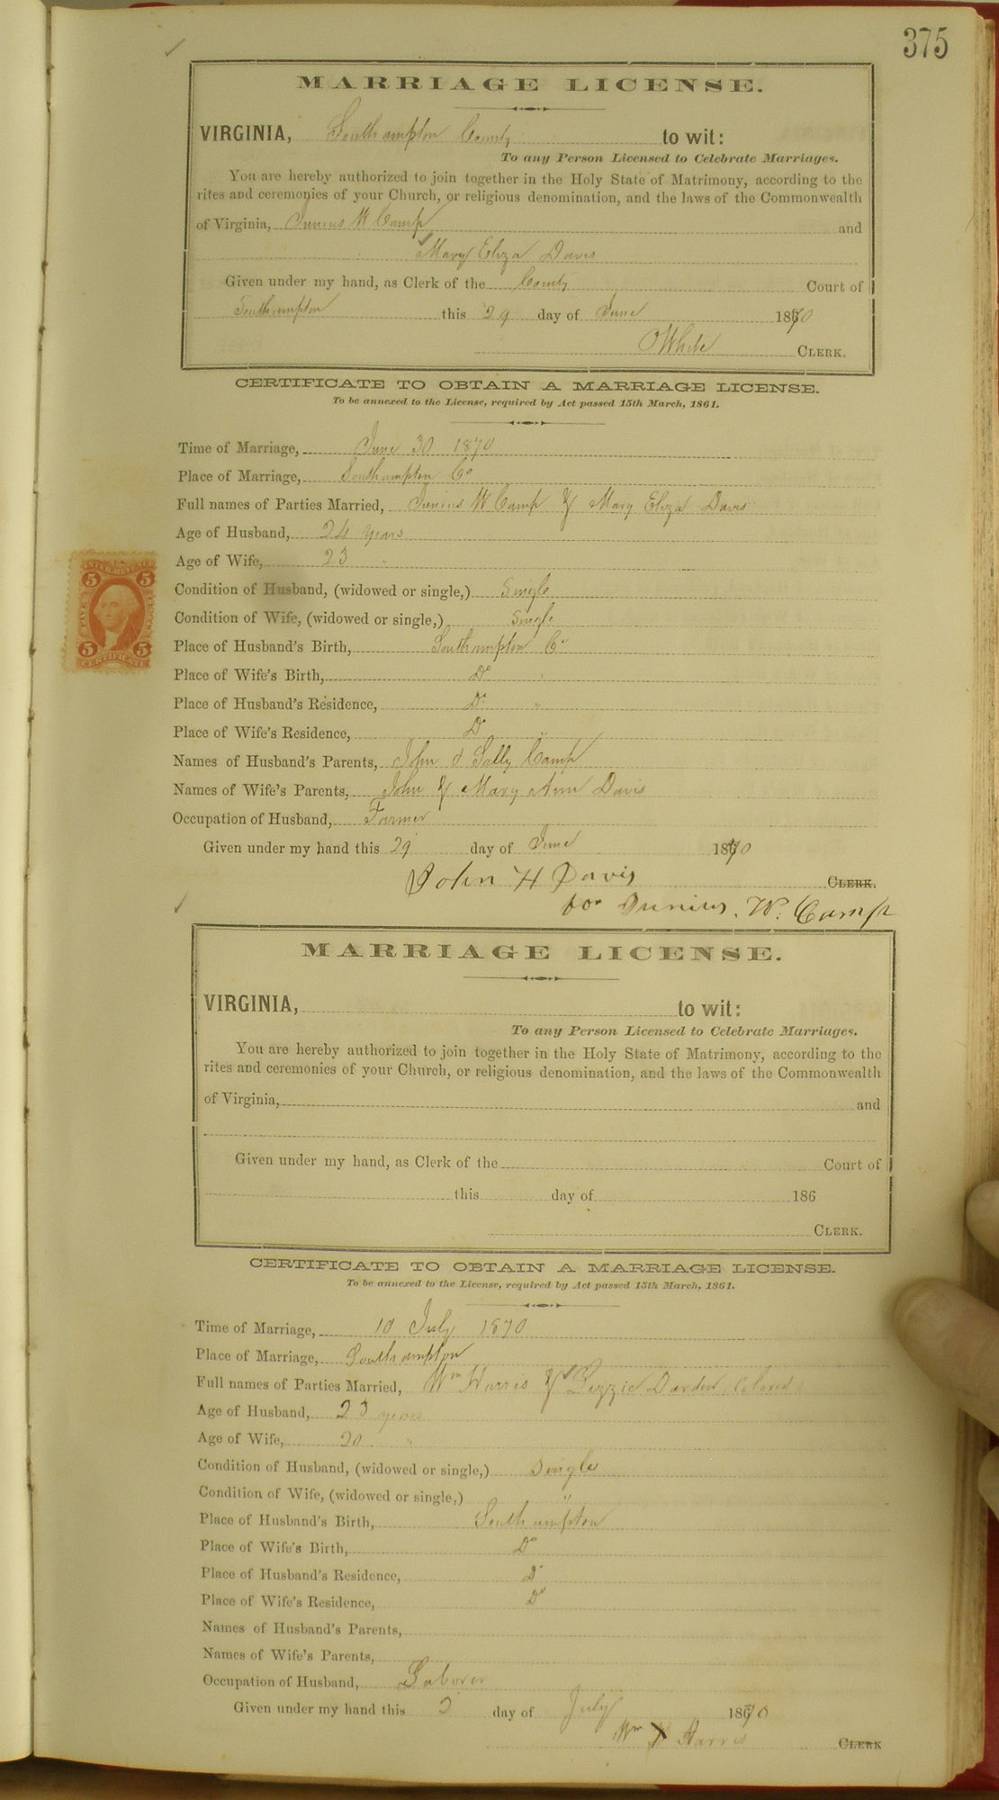 375
MARRIAGE LICENSE.
VIRGINIA, Southampton County to wit:
To any Person Licensed to Celebrate Marriages.
You are hereby authorized to join together in the Holy State of Matrimony, according to the
rites and ceremonies of your Church, or religious denomination, and the laws of the Commonwealth
of Virginia, Junius W Camp and
Mary Eliza Davis
Given under my hand, as Clerk of the County Court of
Southampton this 29 day of June 1870
White CLERK.
CERTIFICATE TO OBTAIN A MARRIAGE LICENSE.
To be annexed to the License, required by Act passed 15th March, 1861.
Time of Marriage, June 30 1870
Place of Marriage, Southampton Co
Full names of Parties Married, Junius W Camp & Mary Eliza Davis
Age of Husband, 24 years
Age of Wife, 23 "
Condition of Husband, (widowed or single,) Single
Condition of Wife, (widowed or single,) Single
Place of Husband's Birth, Southampton Co
Place of Wife's Birth, Do "
Place of Husband's Residence, Do "
Place of Wife's Residence, Do "
Names of Husband's Parents, John & Sally Camp
Names of Wife's Parents, John & Mary Ann Davis
Occupation of Husband, Farmer
Given under my hand this 29 day of June 1870
John H Davis CLERK.
for Junius. W. Camp
INTER. REVENUE
5 5
5 5
CERTIFICATE
MARRIAGE LICENSE.
VIRGINIA, to wit:
To any Person Licensed to Celebrate Marriages.
You are hereby authorized to join together in the Holy State of Matrimony, according to the
rites and ceremonies of your Church, or religious denomination, and the laws of the Commonwealth
of Virginia, and
Given under my hand, as Clerk of the Court of
this day of 186
CLERK.
CERTIFICATE TO OBTAIN A MARRIAGE LICENSE.
To be annexed to the License, required by Act passed 15th March, 1861.
Time of Marriage, 10 July 1870
Place of Marriage, Southampton
Full names of Parties Married, Wm Harris & Lizzie Darden (Colored)
Age of Husband, 23 years
Age of Wife, 20 "
Condition of Husband, (widowed or single,) Single
Condition of Wife, (widowed or single,) "
Place of Husband's Birth, Southampton
Place of Wife's Birth, Do
Place of Husband's Residence, Do
Place of Wife's Residence, Do
Names of Husband's Parents,
Names of Wife's Parents,
Occupation of Husband, Laborer
Given under my hand this day of July 1870
Wm X Harris CLERK